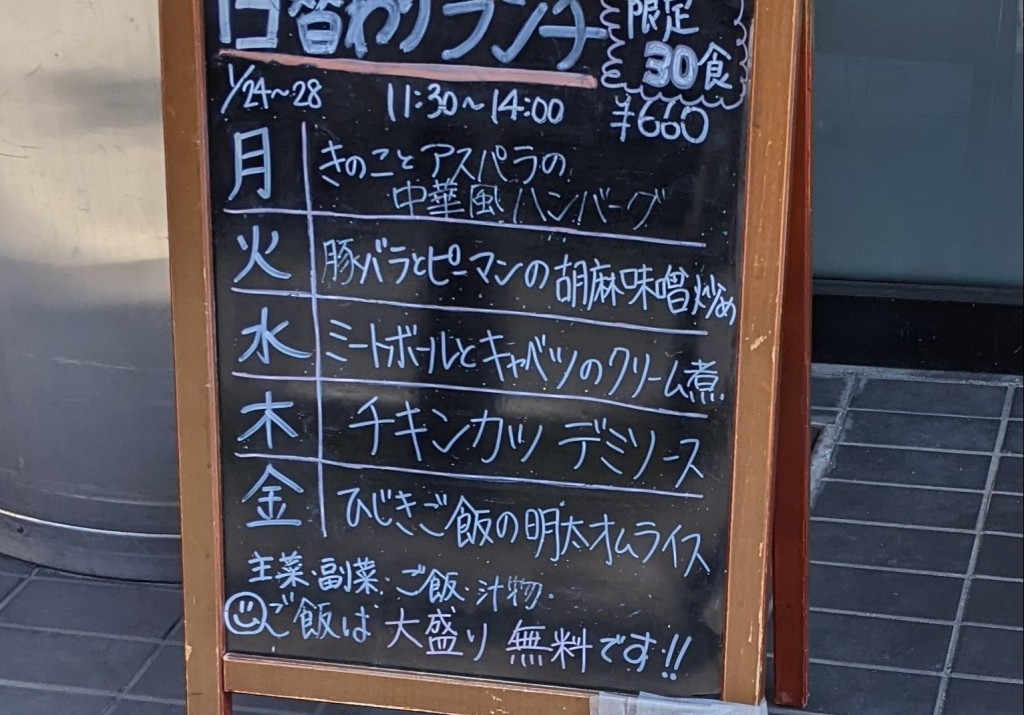 日替わりランチ
限定
30食
1/24～28 11:30～14:00 ¥660
月 きのことアスパラの
中華風ハンバーグ
火 豚バラとピーマンの胡麻味噌炒め
水 ミートボールとキャベツのクリーム煮
木 チキンカツ デミソース
金 ひじきご飯の明太オムライス
主菜・副菜・ご飯・汁物・
ご飯は大盛り無料です!!